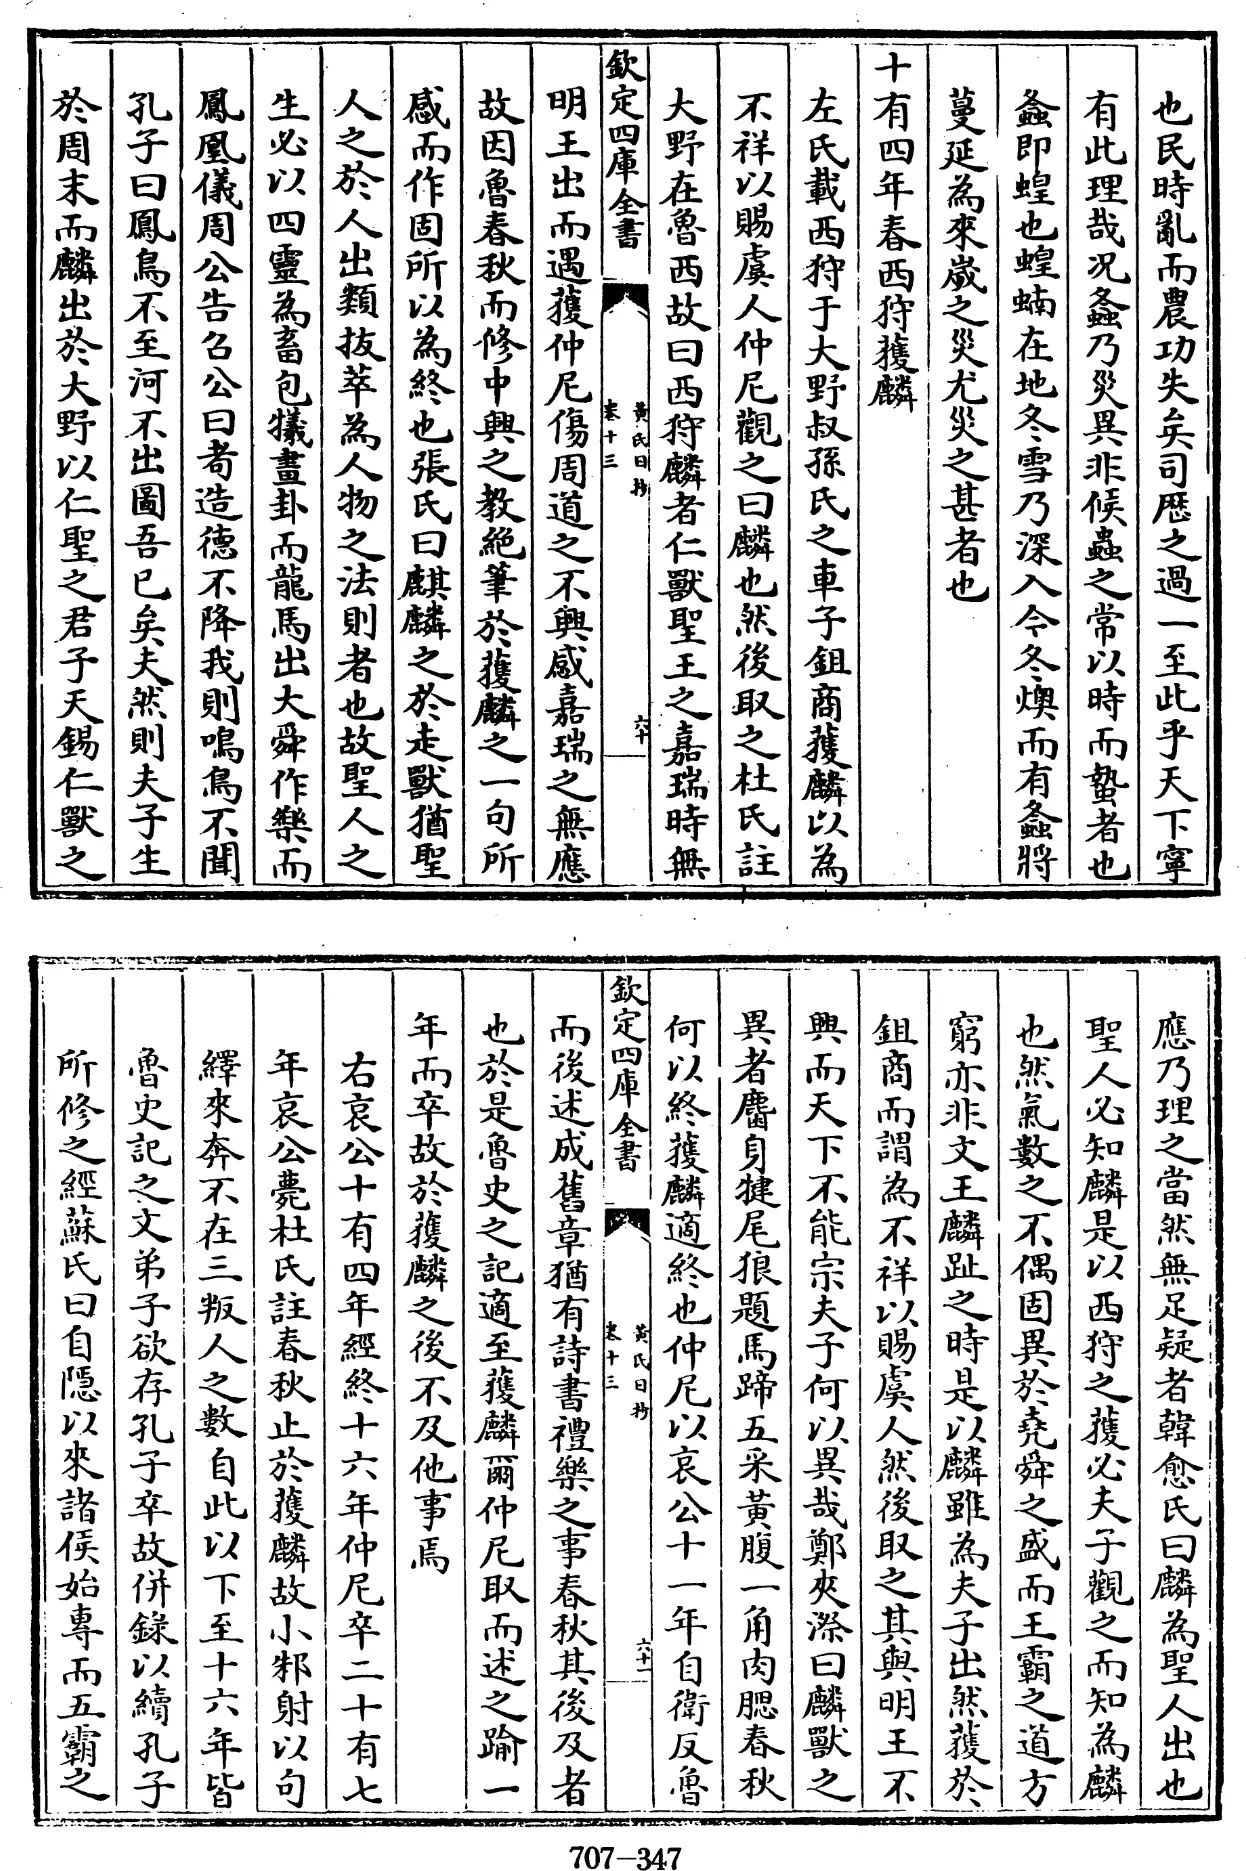 也民時亂而農功失矣司歴之過一至此乎天下寧
有此理哉况螽乃災異非候蟲之常以時而蟄者也
螽即蝗也蝗蝻在地冬雪乃深入今冬燠而有螽將
蔓延為來嵗之災尤災之甚者也
十有四年春西狩獲麟
左氏載西狩于大野叔孫氏之車子鉏商獲麟以為
不祥以賜虞人仲尼觀之曰麟也然後取之杜氏註
大野在魯西故曰西狩麟者仁獸聖王之嘉瑞時無
欽定四庫全書
黄氏日抄
卷十三
六十
明王出而遇獲仲尼傷周道之不興感嘉瑞之無應
故因魯春秋而修中興之教絶筆於獲麟之一句所
感而作固所以為終也張氏曰麒麟之於走獸猶聖
人之於人出類拔萃為人物之法則者也故聖人之
生必以四靈為畜包犧畫卦而龍馬出大舜作樂而
鳳凰儀周公告召公曰耇造德不降我則鳴鳥不聞
孔子曰鳳鳥不至河不出圖吾已矣夫然則夫子生
於周末而麟出於大野以仁聖之君子天錫仁獸之
應乃理之當然無足疑者韓愈氏曰麟為聖人出也
聖人必知麟是以西狩之獲必夫子觀之而知為麟
也然氣數之不偶固異於堯舜之盛而王霸之道方
窮亦非文王麟趾之時是以麟雖為夫子出然獲於
鉏商而謂為不祥以賜虞人然後取之其與明王不
興而天下不能宗夫子何以異哉鄭夾漈曰麟獸之
異者麕身犍尾狼題馬蹄五采黃腹一角肉腮春秋
何以終獲麟適終也仲尼以哀公十一年自衛反魯
欽定四庫全書
黄氏日抄
卷十三
六十一
而後述成舊章猶有詩書禮樂之事春秋其後及者
也於是魯史之記適至獲麟爾仲尼取而述之踰一
年而卒故於獲麟之後不及他事焉
右哀公十有四年經終十六年仲尼卒二十有七
年哀公薨杜氏註春秋止於獲麟故小邾射以句
繹來奔不在三叛人之數自此以下至十六年皆
魯史記之文弟子欲存孔子卒故併錄以續孔子
所修之經蘇氏曰自隱以來諸侯始專而五霸之
707-347